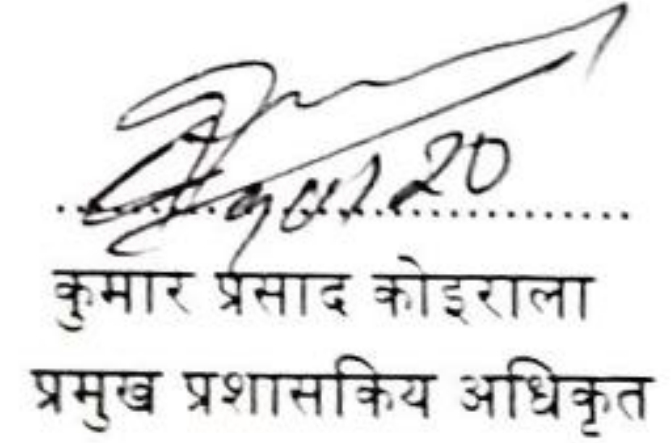 कुमार प्रसाद कोइराला
प्रमुख प्रशासकिय अधिकृत